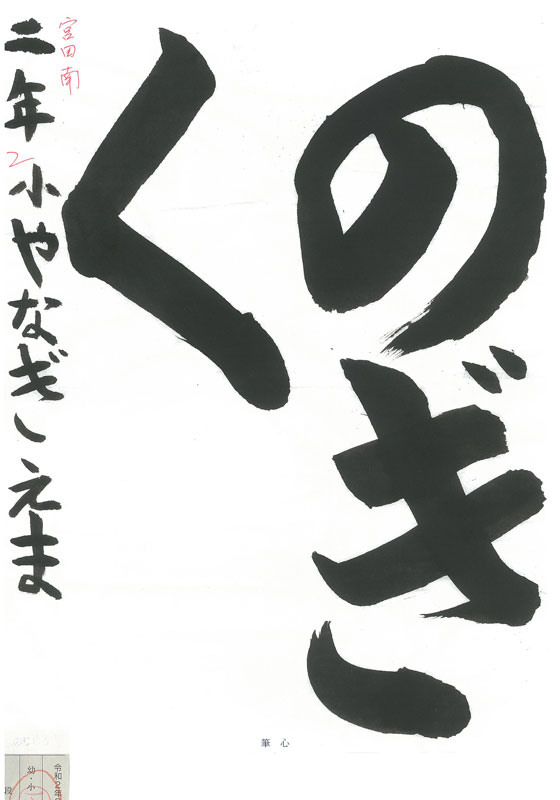 のぎ
く
宮田南
二年
2
小やなぎえま
心筆
令和2年
幼・小
段